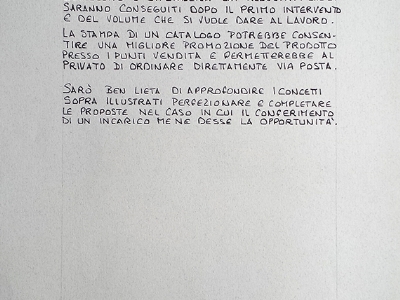 SARANNO CONSEGUITI DOPO IL PRIMO INTERVENTO
E DEL VOLUME CHE SI VUOLE DARE AL LAVORO.
LA STAMPA DI UN CATALOGO POTREBBE CONSEN-
TIRE UNA MIGLIORE PROMOZIONE DEL PRODOTTO
PRESSO I PUNTI VENDITA E PERMETTEREBBE AL
PRIVATO DI ORDINARE DIRETTAMENTE VIA POSTA.
SARÒ BEN LIETA DI APPROFONDIRE I CONCETTI
SOPRA ILLUSTRATI PERFEZIONARE E COMPLETARE
LE PROPOSTE NEL CASO IN CUI IL CONFERIMENTO
DI UN INCARICO ME NE DESSE LA OPPORTUNITA'.